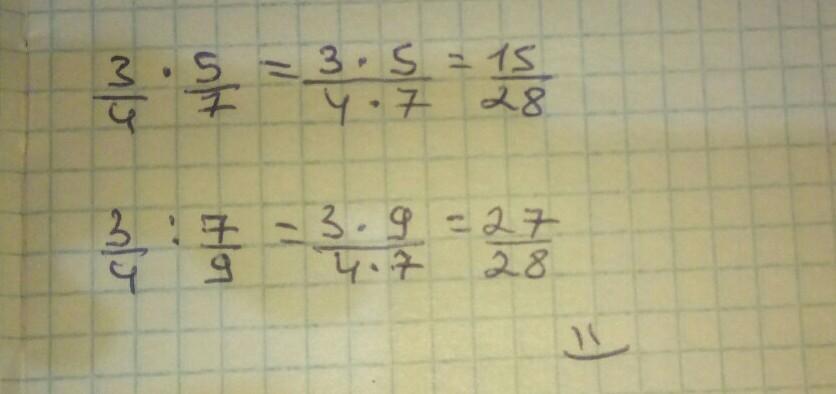 3/4 · 5/7 = 3 · 5/4 · 7 = 15/28
3/4 : 7/9 = 3 · 9/4 · 7 = 27/28